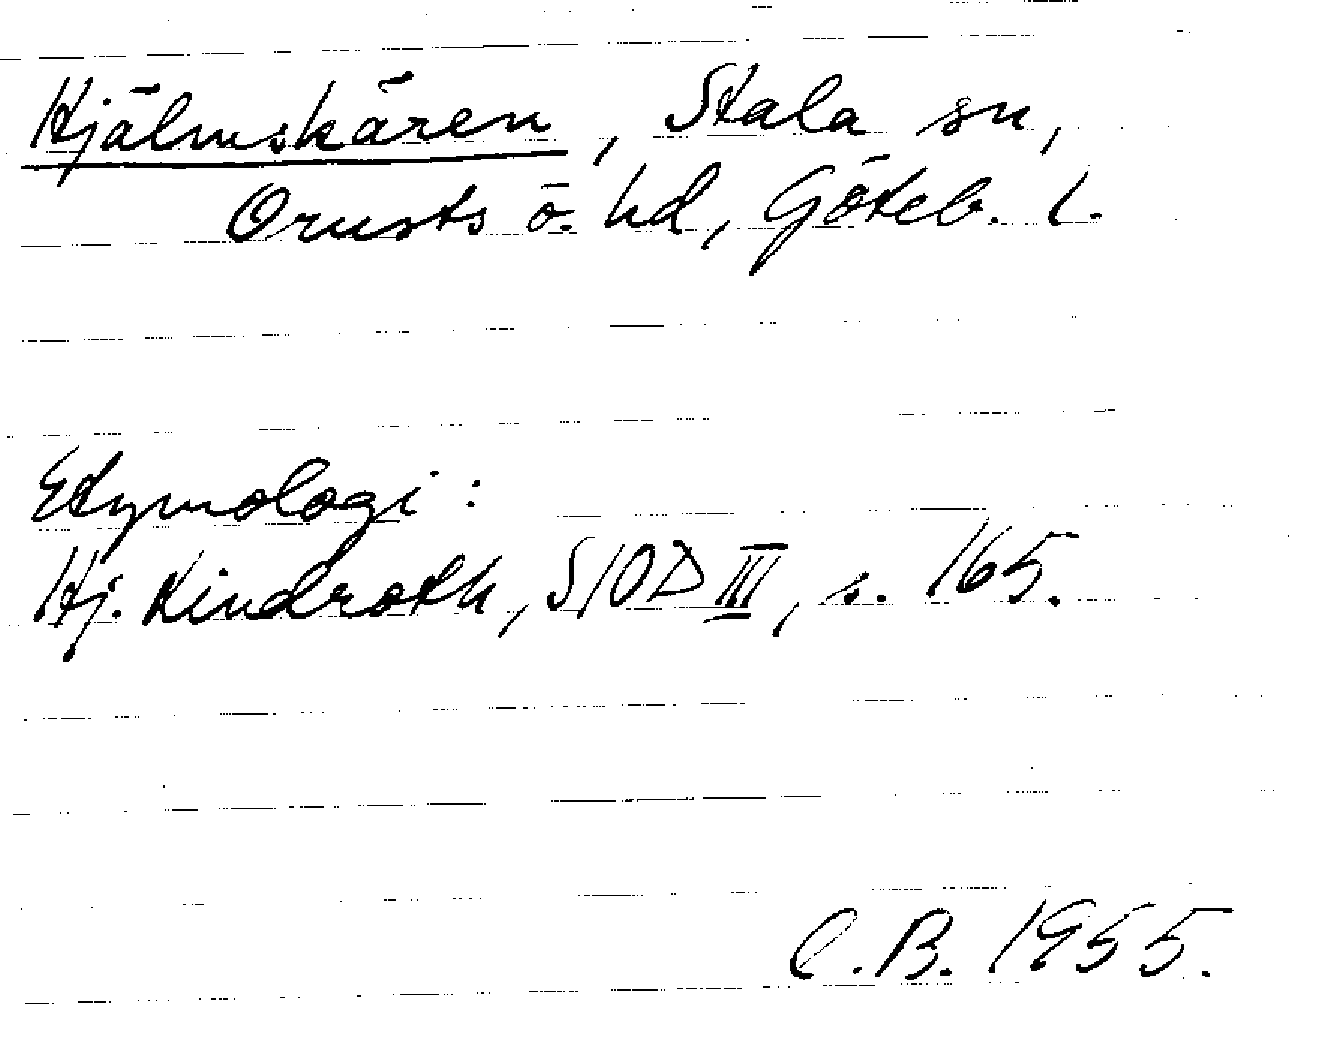 Hjälmskären, Stala sn,
Orusts ö. hd, Göteb. l.
Etymologi:
Hj. Lindroth, SIOD III, s. 165.
C.B. 1955.